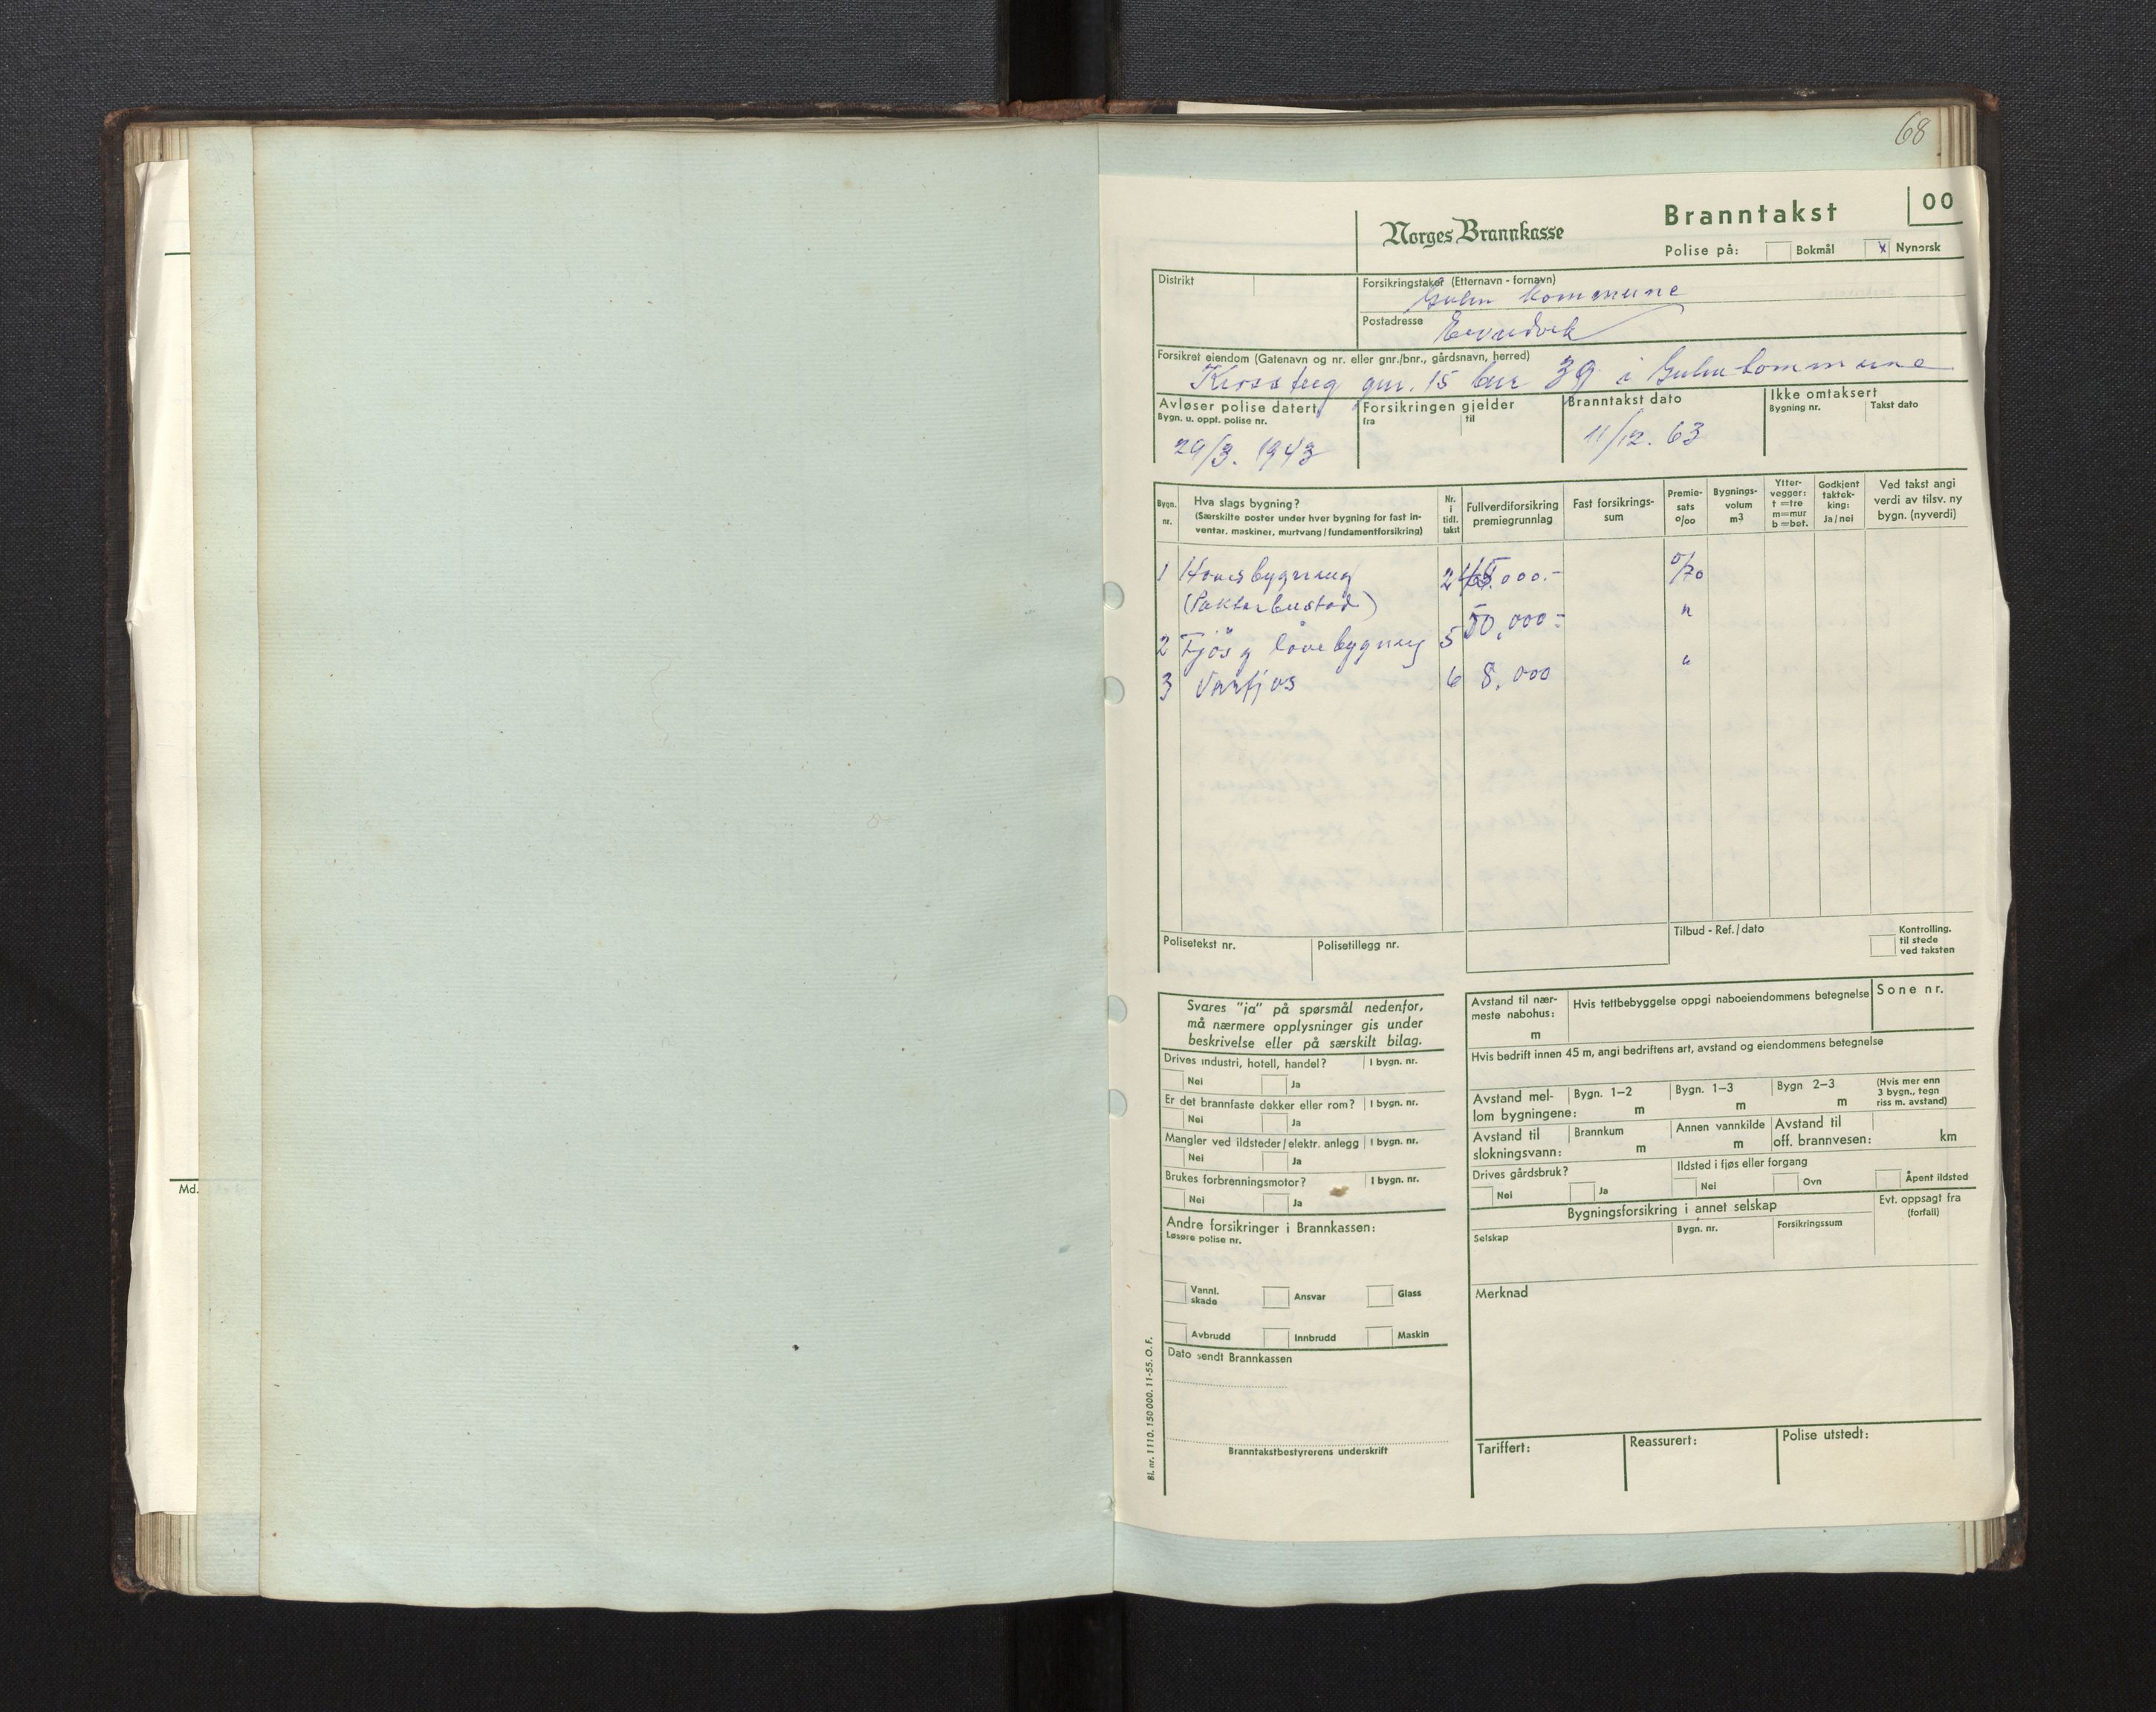 68
Norges Brannkasse
Branntakst
00
Polise på: Bokmål x Nynorsk
Distrikt
Forsikringstaker (Etternavn - fornavn)
Gulen kommune
Postadresse
Eivindvik
Forsikret eiendom (Gatenavn og nr. eller gnr./bnr., gårdsnavn, herred)
gnr. 15 bnr 39 i Gulen kommune
Avløser polise datert
Bygn. u. oppt. polise nr.
29/3. 1943
Forsikringen gjelder
fra til
Branntakst dato
11/12. 63
Ikke omtaksert
Bygning nr. Takst dato
Bygn. nr.
Hva slags bygning?
(Særskilte poster under hver bygning for fast in-
ventar, maskiner, murtvang/fundamentforsikring)
Nr. i tidl. takst
Fullverdiforsikring premiegrunnlag
Fast forsikrings-
sum
Premie-
sats
o/oo
Bygnings-
volum
m3
Ytter-
vegger:
t = tre
m = mur
b = bet.
Godkjent
taktek-
king:
Ja/nei
Ved takst angi
verdi av tilsv. ny
bygn. (nyverdi)
1 Hovedbygning 2 .000.- 0/70
(Doktorbustad)
2 Fjös og lövebygning 5 50,000:- "
3 6 8,000 "
Polisetekst nr.
Polisetillegg nr.
Tilbud - Ref./dato
Kontrolling.
til stede
ved taksten
Svares "ja" på spørsmål nedenfor,
må nærmere opplysninger gis under
beskrivelse eller på særskilt bilag.
Drives industri, hotell, handel? I bygn. nr.
Nei Ja
Er det brannfaste dekker eller rom? I bygn. nr.
Nei Ja
Mangler ved ildsteder/elektr. anlegg I bygn. nr.
Nei Ja
Brukes forbrenningsmotor? I bygn. nr.
Nei Ja
Andre forsikringer i Brannkassen:
Løsøre polise nr.
Vannl. skade Ansvar Glass
Avbrudd Innbrudd Maskin
Dato sendt Brannkassen
Branntakstbestyrerens underskrift
Bl. nr. 1110. 150 000. 11-55. O. F.
Avstand til nær-
meste nabohus:
m
Hvis tettbebyggelse oppgi naboeiendommens betegnelse
Sone nr.
Hvis bedrift innen 45 m, angi bedriftens art, avstand og eiendommens betegnelse
Avstand mel-
lom bygningene:
Bygn. 1-2 m
Bygn. 1-3 m
Bygn 2-3 m
(Hvis mer enn
3 bygn., tegn
riss m. avstand)
Avstand til
slokningsvann:
Brannkum m
Annen vannkilde m
Avstand til
off. brannvesen: km
Drives gårdsbruk?
Nei Ja
Ildsted i fjøs eller forgang
Nei Ovn Åpent ildsted
Bygningsforsikring i annet selskap
Selskap
Bygn. nr.
Forsikringssum
Evt. oppsagt fra
(forfall)
Merknad
Tariffert:
Reassurert:
Polise utstedt:
Md.